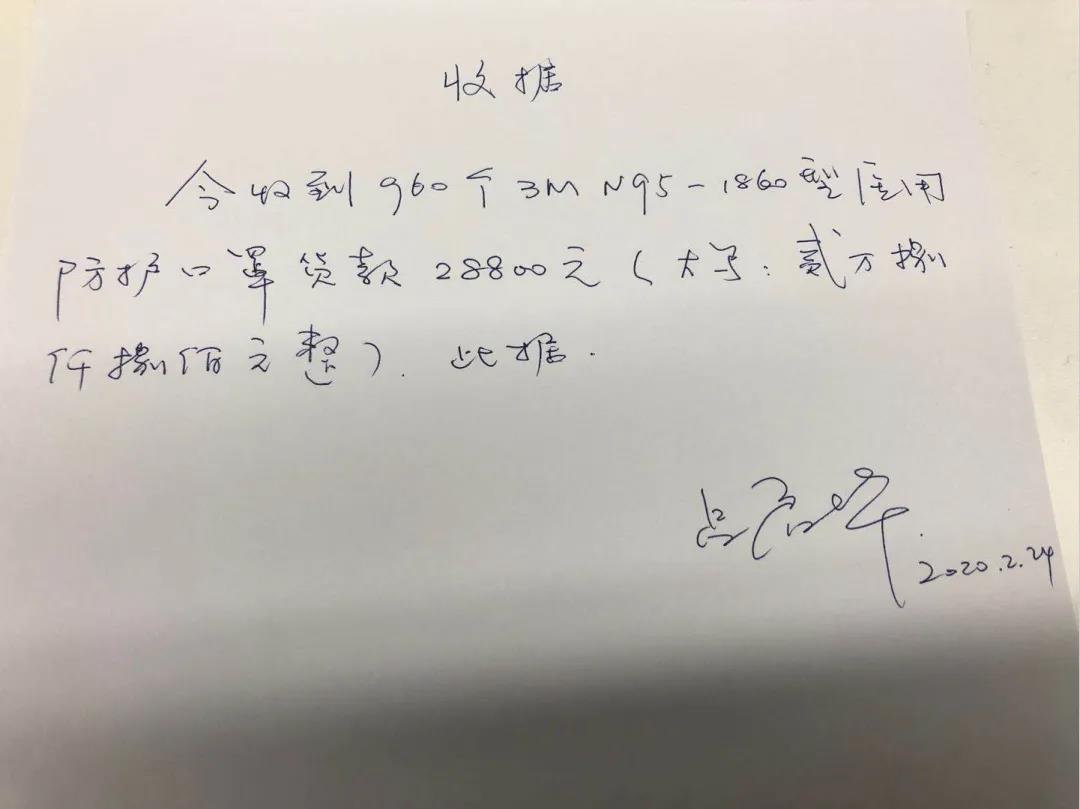 收据
今收到960个3M N95-1860型医用
防护口罩货款28800元(大写:贰万捌
仟捌佰元整).此据.
2020.2.24